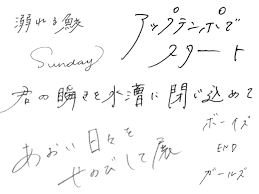 溺れる鯨
アップテンポで
スタート
Sunday
君の瞬きを水漕に閉じ込めて
あおい日々を
せのびして展
ボーイズ
END
ガールズ